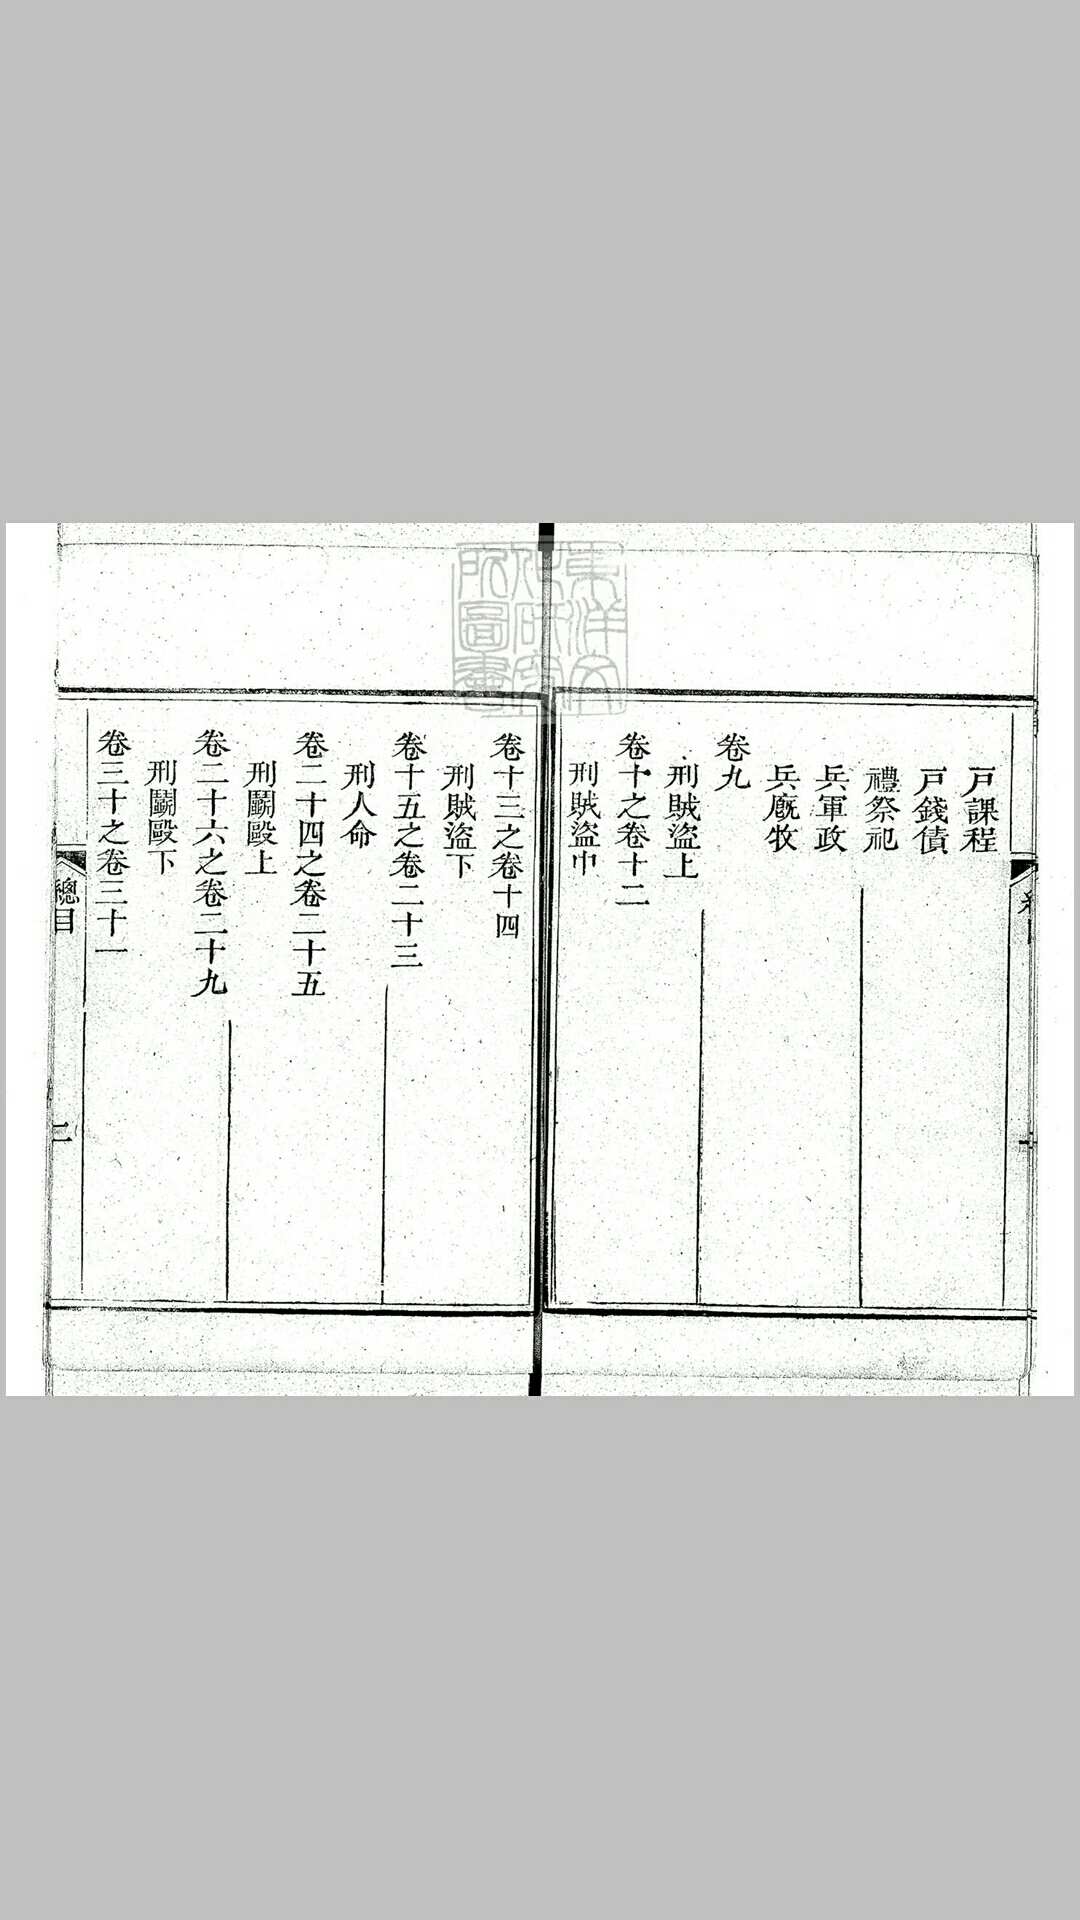 戸課程
戸錢債
禮祭祀
兵軍政
兵廐牧
卷九
刑賊盜上
卷十之卷十二
刑賊盜中
卷十三之卷十四
刑賊盜下
卷十五之卷二十三
刑人命
卷二十四之卷二十五
刑鬭毆上
卷二十六之卷二十九
刑鬭毆下
卷三十之卷三十一
總目
二
東洋文
化研究
所圖書